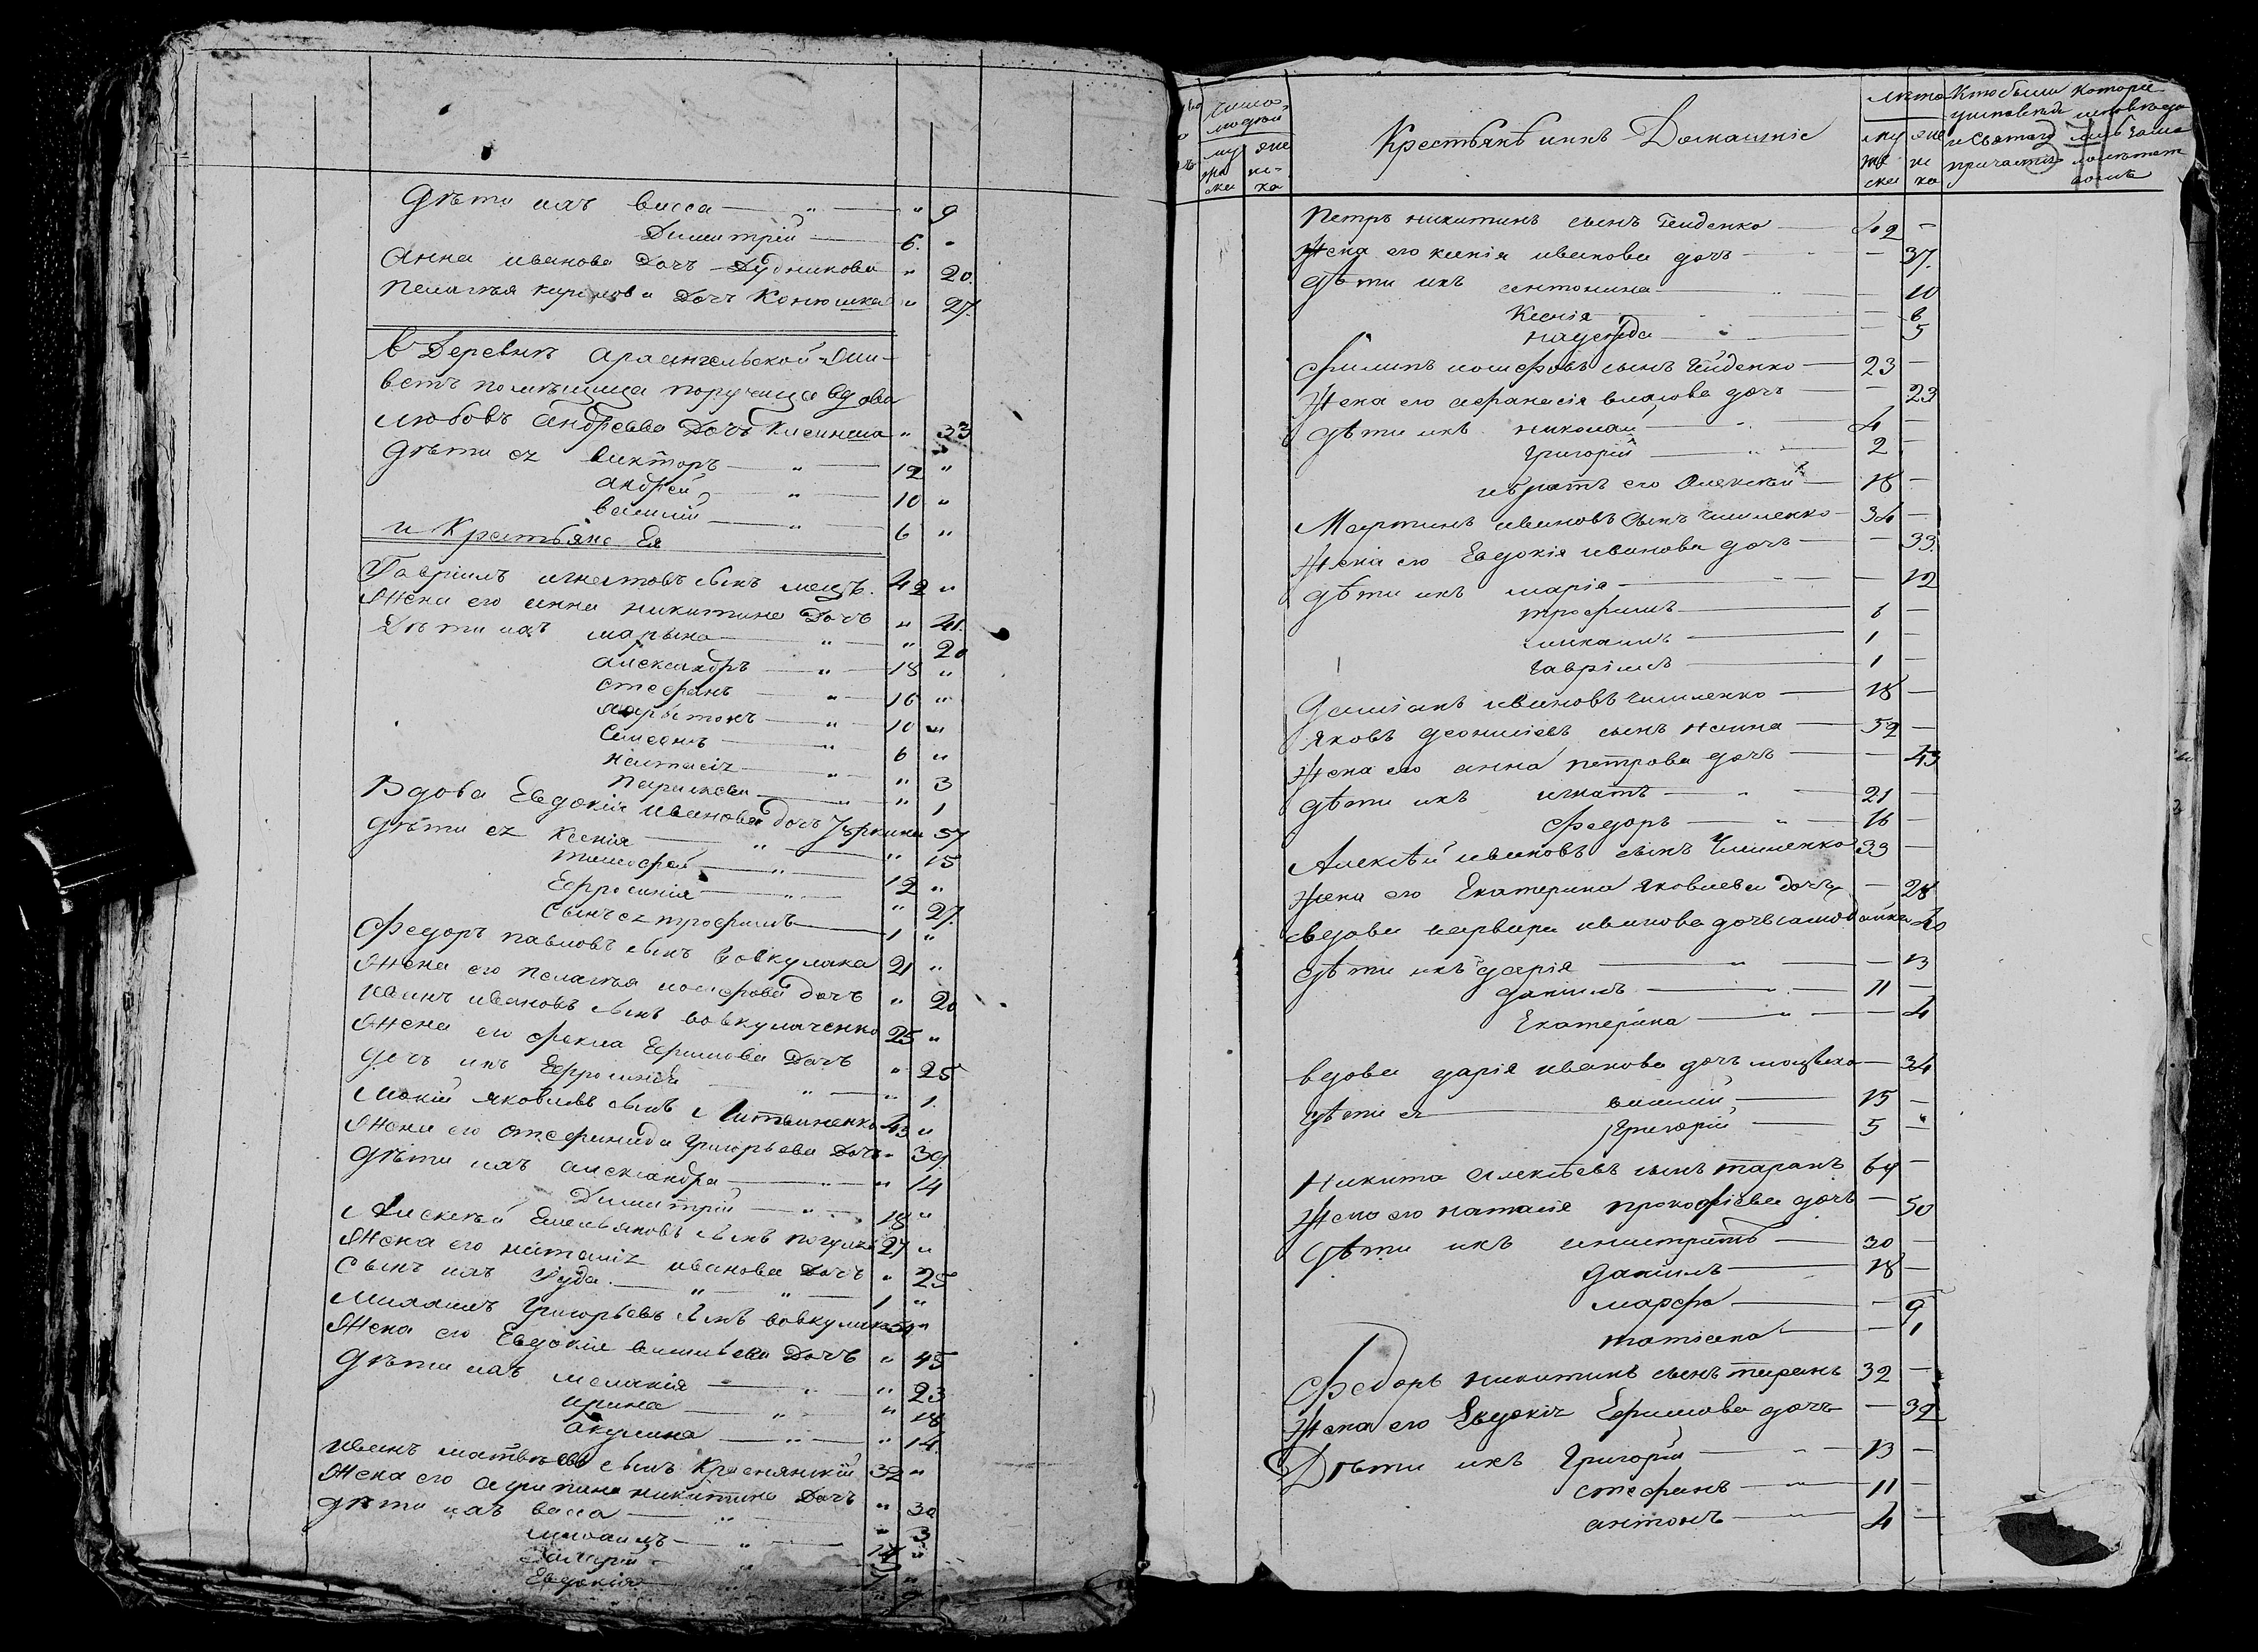 Дѣти ихъ васса — " — " 9
Димитрій — 6. "
Анна иванова Дочъ Дудникова " 20.
Пелагѣя Дочъ Конюшка " 27.
в Деревнѣ
помѣщица вдова
любовъ андреева Дочъ " 33
Дѣти ея викторъ — " — 12 "
андрей — " — 10 "
василій — " — 6 "
и Крестьяне Ея
Гавріилъ игнатовъ сынъ 42 "
Жена его анна никитина Дочъ " 41.
Дѣти ихъ марьяна — " — " 20
александръ — " — 18 "
стефанъ — " — 16 "
харытонъ — " — 10 "
Симеонъ — " — 6 "
наталія — " — " 3
Параскева — " — " 1
Вдова Евдокія иванова дочъ 57
Дѣти ея Ксенія — " — " 15
тимофей — " — 12 "
Ефросинія — " — " 27.
Сынъ ея трофимъ — 1 "
Федоръ павловъ сынъ вовкулака 21 "
Жена его Пелагѣя иосифова дочъ " 20
иванъ ивановъ сынъ вовкулаченко 25 "
Жена его фекла Ефимова Дочъ " 25
Дочъ ихъ Ефросинія — " — " 1.
Мокій яковлевъ сынъ Литвиненко 43 "
Жена его Григорьева Дочъ " 39.
Дѣти ихъ александра — " — " 14
Димитрій — " — 18 "
Алексѣй Емельяновъ сынъ 27 "
Жена его наталія иванова Дочъ " 25
Сынъ ихъ — " — " — 1 "
Михаилъ Григорьевъ сынъ вовкулака "
Жена его Евдокія васильева Дочъ " 45
Дѣти ихъ меланія — " — " 23
ирина — " — " 18
акулина — " — " 14.
иванъ матвѣевъ сынъ Краснянскій 32 "
Жена его агрипина никитина Дочъ " 30
Дѣти ихъ васса — " — " 3
михаилъ — " — "
Евдокія — "
число людей
мужеска женска
Крестьянѣ ихъ Домашніе
лѣта
мужеска женска
Кто были у исповѣди и Святаго причастія
Которіе
Петръ никитинъ сынъ Гейденко — 42 —
Жена его ксенія иванова дочъ — — 37.
Дѣти ихъ антонина — — 10
Ксенія — — 6
надежда — — 5
Филипъ иосифовъ сынъ Гейденко — 23 —
Жена его афанасія власова дочъ — — 23
Дѣти ихъ николай — 4 —
Григорій — 2 —
и братъ его Алексѣй — 18 —
Мартинъ ивановъ сынъ — 34 —
Жена его Евдокія иванова дочъ — — 33.
Дѣти ихъ марія — — 12
трофимъ — 6 —
михаилъ — 1 —
Гавріилъ — 1 —
Даміанъ ивановъ — 18 —
Яковъ сынъ — 52 —
Жена его анна петрова дочъ — — 43
Дѣти ихъ игнатъ — 21 —
Федоръ — 16 —
Алексѣй ивановъ сынъ 33 —
Жена его Екатерина яковлева дочъ — 28
вдова варвара иванова дочъ 40
Дѣти ихъ дарія — — 13
даниилъ — 11 —
Екатерина — — 4
вдова дарія иванова дочъ — 34
Дѣти ея василій — 15 —
Григорій — 5 "
Никита алексѣевъ сынъ таранъ 64 —
Жена его наталія прокофіева дочъ — 50
Дѣти ихъ — 30 —
даниилъ — 18 —
марфа — — 9
татіана — — 1
Федоръ никитинъ сынъ таранъ 32 —
Жена его Евдокія Ефимова дочъ — 32
Дѣти ихъ Григорій — 13 —
стефанъ — 11 —
антонъ — 4 —